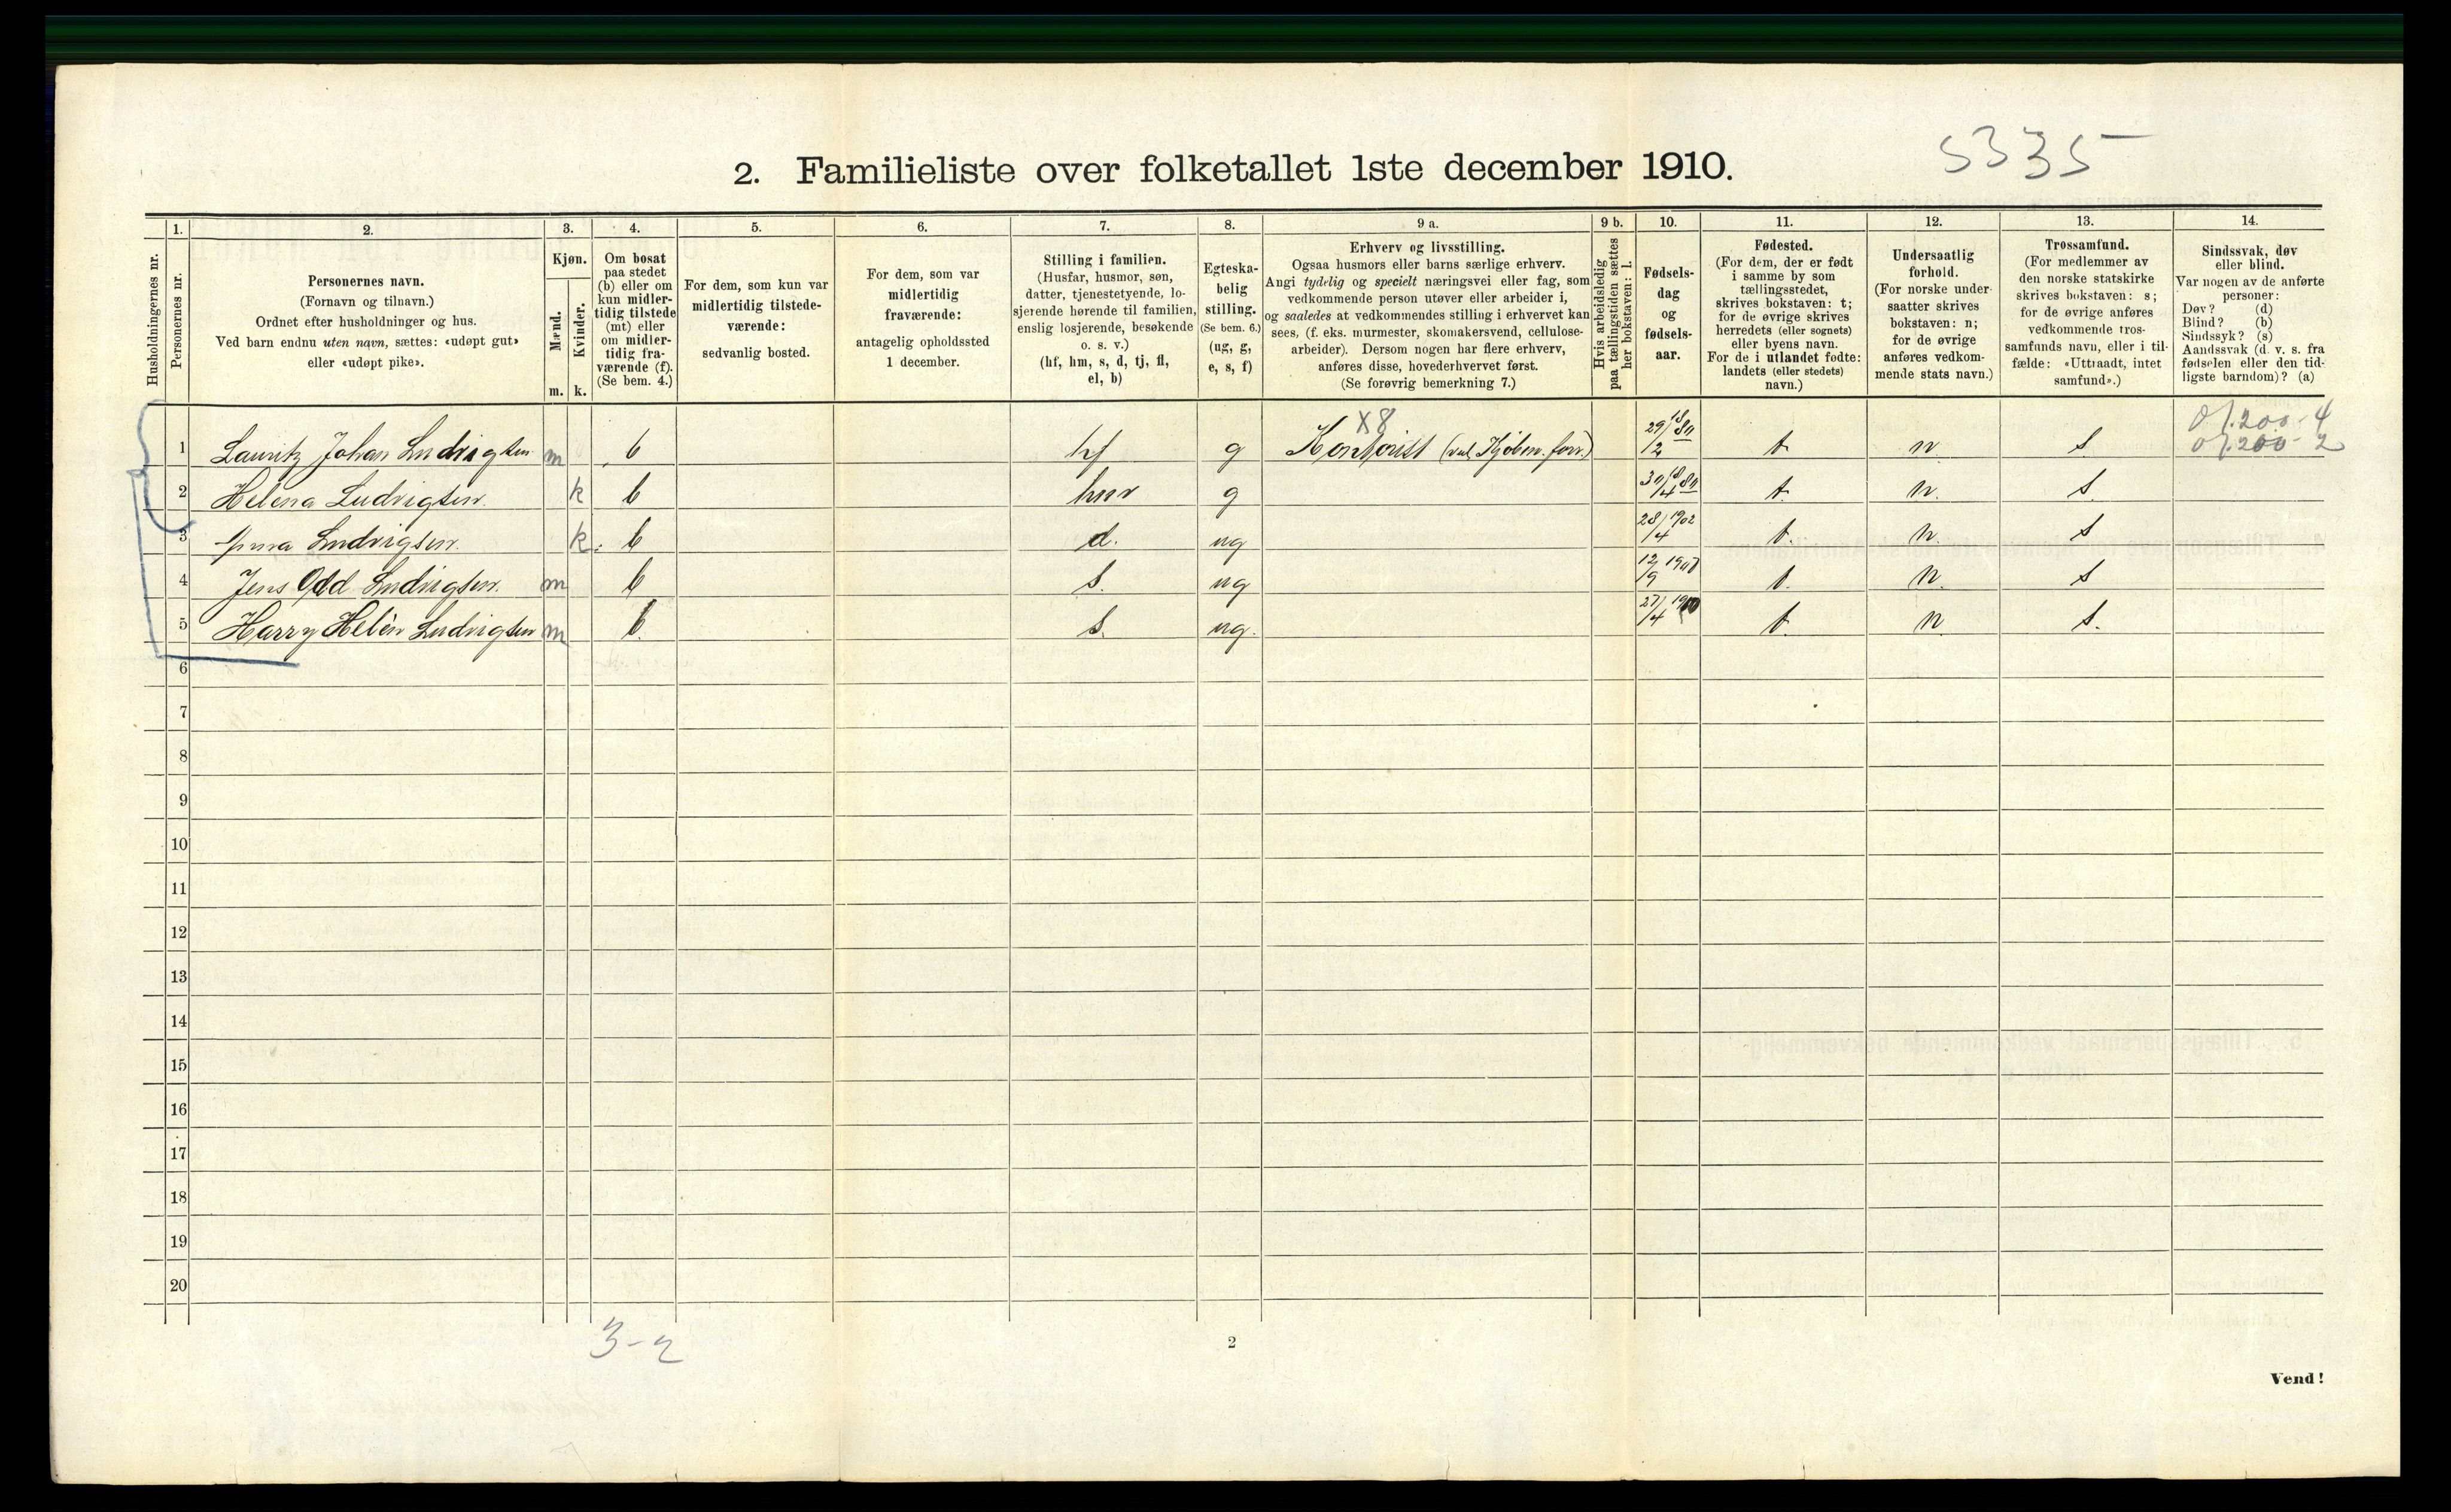 5335
2. Familieliste over folketallet 1ste december 1910.
Husholdningernes nr.
1.
Personernes nr.
2.
Personernes navn.
(Fornavn og tilnavn.)
Ordnet efter husholdninger og hus.
Ved barn endnu uten navn, sættes: «udøpt gut»
eller «udøpt pike».
3.
Kjøn.
Mænd.
Kvinder.
m. k.
4.
Om bosat
paa stedet
(b) eller om
kun midler-
tidig tilstede
(mt) eller
om midler-
tidig fra-
værende (f).
(Se bem. 4.)
5.
For dem, som kun var
midlertidig tilstede-
værende:
sedvanlig bosted.
6.
For dem, som var
midlertidig
fraværende:
antagelig opholdssted
1 december.
7.
Stilling i familien.
(Husfar, husmor, søn,
datter, tjenestetyende, lo-
sjerende hørende til familien,
enslig losjerende, besøkende
o. s. v.)
(hf, hm, s, d, tj, fl,
el, b)
8.
Egteska-
belig
stilling.
(Se bem. 6.)
(ug, g,
e, s, f)
9 a.
Erhverv og livsstilling.
Ogsaa husmors eller barns særlige erhverv.
Angi tydelig og specielt næringsvei eller fag, som
vedkommende person utøver eller arbeider i,
og saaledes at vedkommendes stilling i erhvervet kan
sees, (f. eks. murmester, skomakersvend, cellulose-
arbeider). Dersom nogen har flere erhverv,
anføres disse, hovederhvervet først.
(Se forøvrig bemerkning 7.)
9 b.
Hvis arbeidsledig
paa tællingstiden sættes
her bokstaven: l.
10.
Fødsels-
dag
og
fødsels-
aar.
11.
Fødested.
(For dem, der er født
i samme by som
tællingsstedet,
skrives bokstaven: t;
for de øvrige skrives
herredets (eller sognets)
eller byens navn.
For de i utlandet fødte:
landets (eller stedets)
navn.)
12.
Undersaatlig
forhold.
(For norske under-
saatter skrives
bokstaven: n;
for de øvrige
anføres vedkom-
mende stats navn.)
13.
Trossamfund.
(For medlemmer av
den norske statskirke
skrives bokstaven: s;
for de øvrige anføres
vedkommende tros-
samfunds navn, eller i til-
fælde: «Uttraadt, intet
samfund».)
14.
Sindssvak, døv
eller blind.
Var nogen av de anførte
personer:
Døv? (d)
Blind? (b)
Sindssyk? (s)
Aandssvak (d. v. s. fra
fødselen eller den tid-
ligste barndom)? (a)
X8
1 Lauritz Johan Ludvigsen m b hf g Kontorist t n s
2 Helena Ludvigsen k b hm g t n s
3 Anna Ludvigsen k b d. ug 28/4 1902 t. n. s
4 Jens Odd Ludvigsen m b s. ug t. n. s
5 Harry Helèn Ludvigsen m b s. ug. 27/4 1910 t. n s.
6
7
8
9
10
11
12
13
14
15
16
17
18
19
20
3-2
2
Vend!